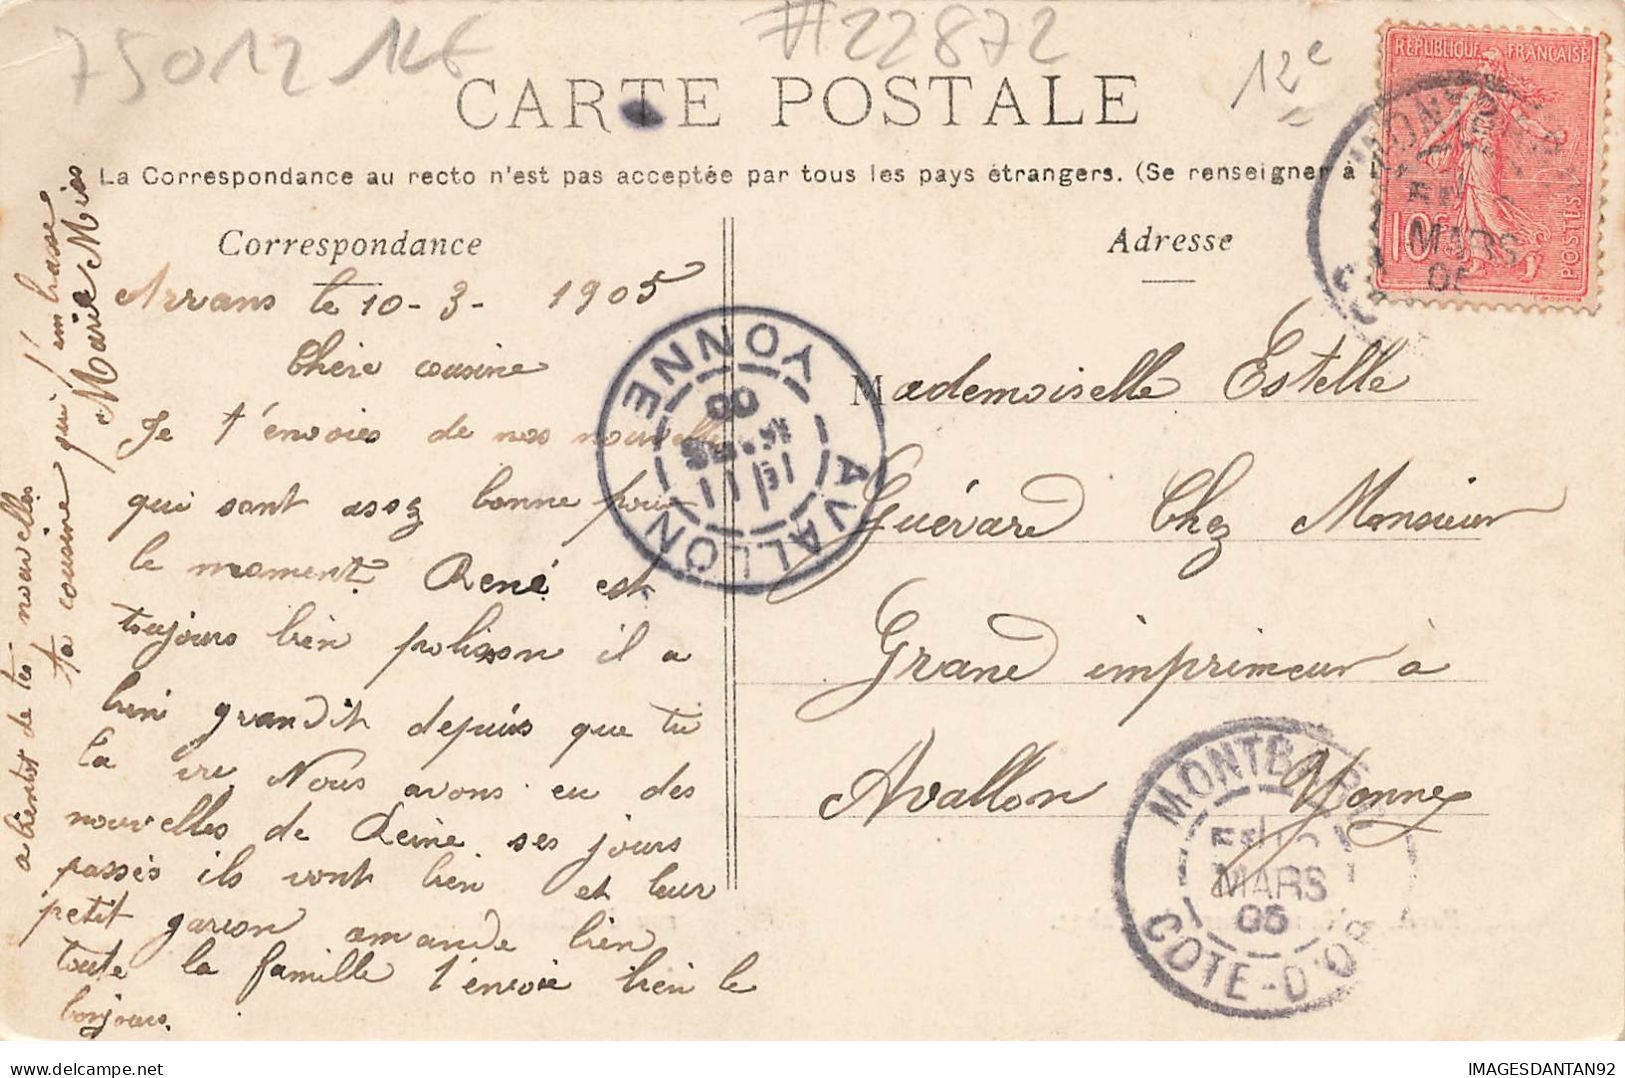 75012 12E
#22872
12e
CARTE POSTALE
La Correspondance au recto n'est pas acceptée par tous les pays étrangers. (Se renseigner à
REPUBLIQUE FRANÇAISE
10c
POSTES
MARS
05
Correspondance
Arrans le 10-3-1905
Chère cousine
Je t'envoies de nos nouvelles
qui sont assez bonne pour
le moment. René est
toujours bien polisson il a
bien grandit depuis que tu
la vu Nous avons eu des
nouvelles de Reine ses jours
passés ils vont bien et leur
petit garson amande bien
toute la famille t'envoie bien le
bonjours.
a bientot de tes nouvelles
ta cousine qui t'embrasse
Marie Mios
AVALLON
YONNE
11
MARS
Adresse
Mademoiselle Estelle
Guévard Chez Monsieur
Grand imprimeur à
Avallon Yonne
MONTBARD
MARS
05
COTE-D'OR
IMAGESDANTAN92